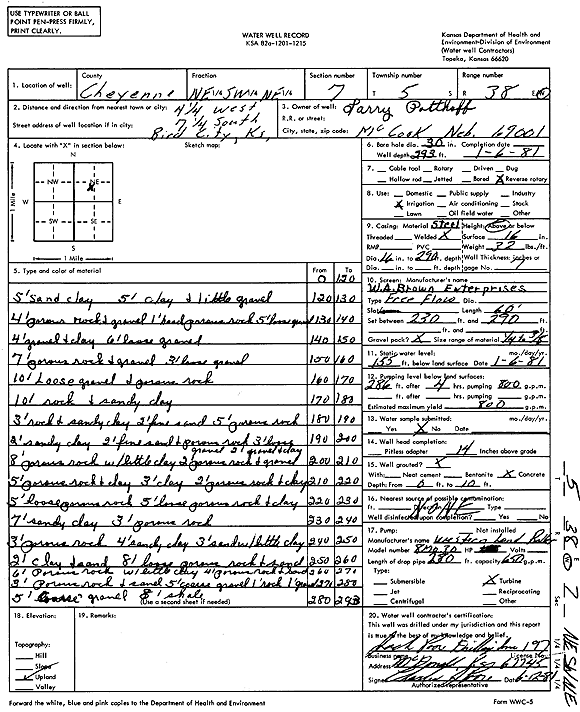 USE TYPEWRITER OR BALL
POINT PEN-PRESS FIRMLY,
PRINT CLEARLY.
WATER WELL RECORD
KSA 82a-1201-1215
Kansas Department of Health and
Environment-Division of Environment
(Water well Contractors)
Topeka, Kansas 66620
1. Location of well: County Cheyenne Fraction NE¼ SW¼ NE¼ Section number 7 Township number T 5 S Range number R 38 E/W
2. Distance and direction from nearest town or city: 4¼ West
7¼ South
Street address of well location if in city: Bird City, Ks,
3. Owner of well: Larry Potthoff
R.R. or street:
City, state, zip code: McCook Neb, 69001
4. Locate with "X" in section below: Sketch map:
N
NW NE
X
W E
SW SE
S
1 Mile
1 Mile
6. Bore hole dia. 30 in. Completion date
Well depth 293 ft. 1-6-81
7. Cable tool Rotary Driven Dug
Hollow rod Jetted Bored X Reverse rotary
8. Use: Domestic Public supply Industry
X Irrigation Air conditioning Stock
Lawn Oil field water Other
9. Casing: Material Steel Height: Above or below
Threaded Welded X Surface 16 in.
RMP PVC Weight 32 lbs./ft.
Dia. 16 in. to 290 ft. depth Wall Thickness: inches or
Dia. in. to ft. depth gage No.
5. Type and color of material From To
0 120
5' Sand clay 5' clay & little gravel 120 130
4' porous rock & gravel 1' hard porous rock 5' loose gravel 130 140
4' gravel & clay 6' loose gravel 140 150
7' porous rock & gravel 3' loose gravel 150 160
10' Loose gravel & porous rock 160 170
10' rock & sandy clay 170 180
3' rock & sandy clay 2' fine sand 5' porous rock 180 190
2' sandy clay 2' fine sand & porous rock 3' loose gravel 2' gravel & clay 190 200
8' porous rock w/little clay 2' porous rock & gravel 200 210
5' porous rock & clay 3' clay 2' porous rock & clay 210 220
5' loose porous rock 5' loose porous rock & clay 220 230
7' sandy clay 3' porous rock 230 240
3' porous rock 4' sandy clay 3' sand w/little clay 240 250
2' clay & sand 8' loose porous rock & sand 250 260
6' Porous rock w/little clay 4' porous rock & sand 260 270
3' Porous rock & sand 5' coarse gravel 1' rock 1' gravel 270 280
5' coarse gravel 8' shale 280 293
(Use a second sheet if needed)
10. Screen: Manufacturer's name
W.A. Brown Enterprises
Type Free Flow Dia.
Slot/gauze Length 60'
Set between 230 ft. and 290 ft.
ft. and ft.
Gravel pack? X Size range of material
11. Static water level: mo./day/yr.
155 ft. below land surface Date 1-6-81
12. Pumping level below land surfaces:
286 ft. after 4 hrs. pumping 800 g.p.m.
ft. after hrs. pumping g.p.m.
Estimated maximum yield 800 g.p.m.
13. Water sample submitted: mo./day/yr.
Yes X No Date
14. Well head completion:
Pitless adapter 14 Inches above grade
15. Well grouted? X
With: Neat cement Bentonite X Concrete
Depth: From 0 ft. to 10 ft.
16. Nearest source of possible contamination:
ft. Direction Type
Well disinfected upon completion? Yes No
17. Pump: Not installed
Manufacturer's name Western Land Roller
Model number HP Volts
Length of drop pipe 230 ft. capacity 650 g.p.m.
Type:
Submersible X Turbine
Jet Reciprocating
Centrifugal Other
18. Elevation:
Topography:
Hill
Slope
X Upland
Valley
19. Remarks:
20. Water well contractor's certification:
This well was drilled under my jurisdiction and this report
is true to the best of my knowledge and belief.
197
Business name License No.
Address McDonald, Ks, 67745
Signed Date 6-12-81
Authorized representative
Forward the white, blue and pink copies to the Department of Health and Environment
Form WWC-5
T 5 R 38 E W Sec 7 NE SW NE ¼ ¼ ¼